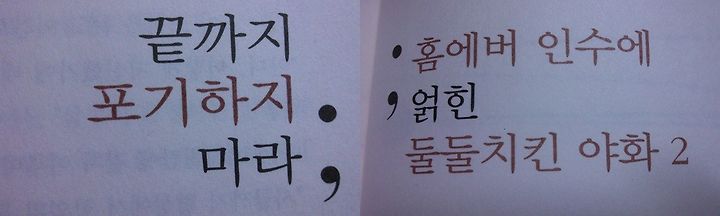 끝까지
포기하지.
마라,
·홈에버 인수에
,얽힌
둘둘치킨 야화 2